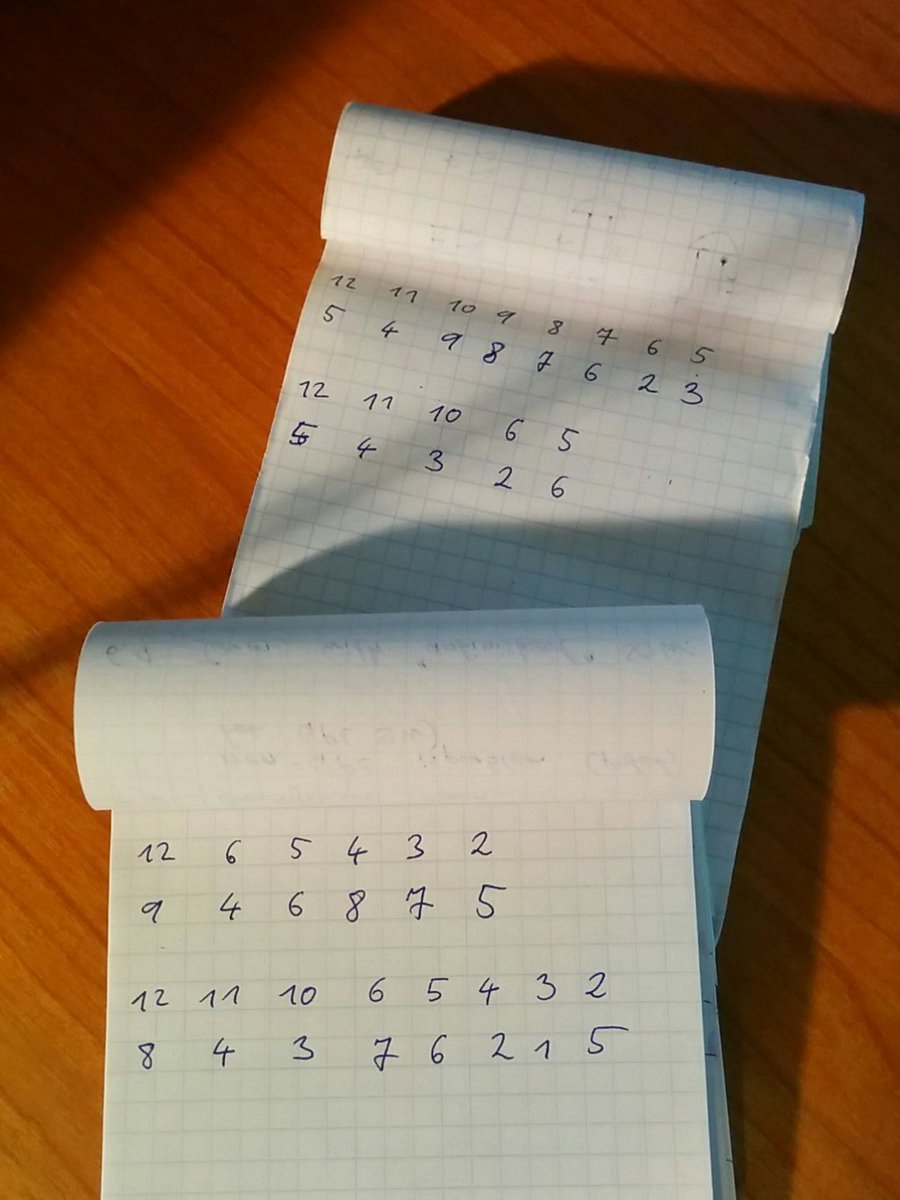 12 11 10 9 8 7 6 5
5 4 9 8 7 6 2 3
12 11 10 6 5
5 4 3 2 6
12 6 5 4 3 2
9 4 6 8 7 5
12 11 10 6 5 4 3 2
8 4 3 7 6 2 1 5